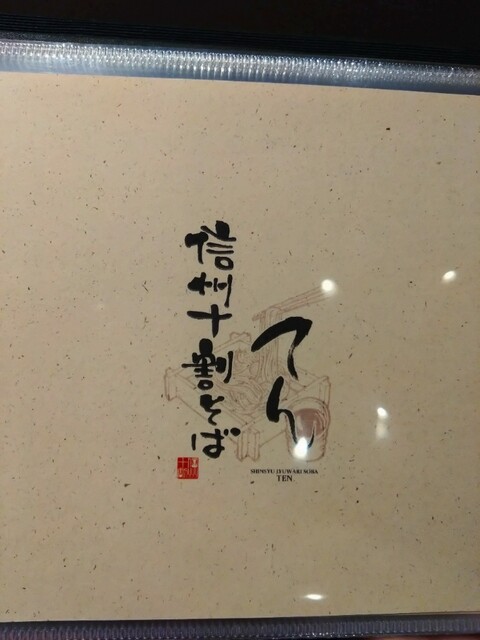 てん
信州十割そば
SHINSYU JYUWARI SOBA
TEN